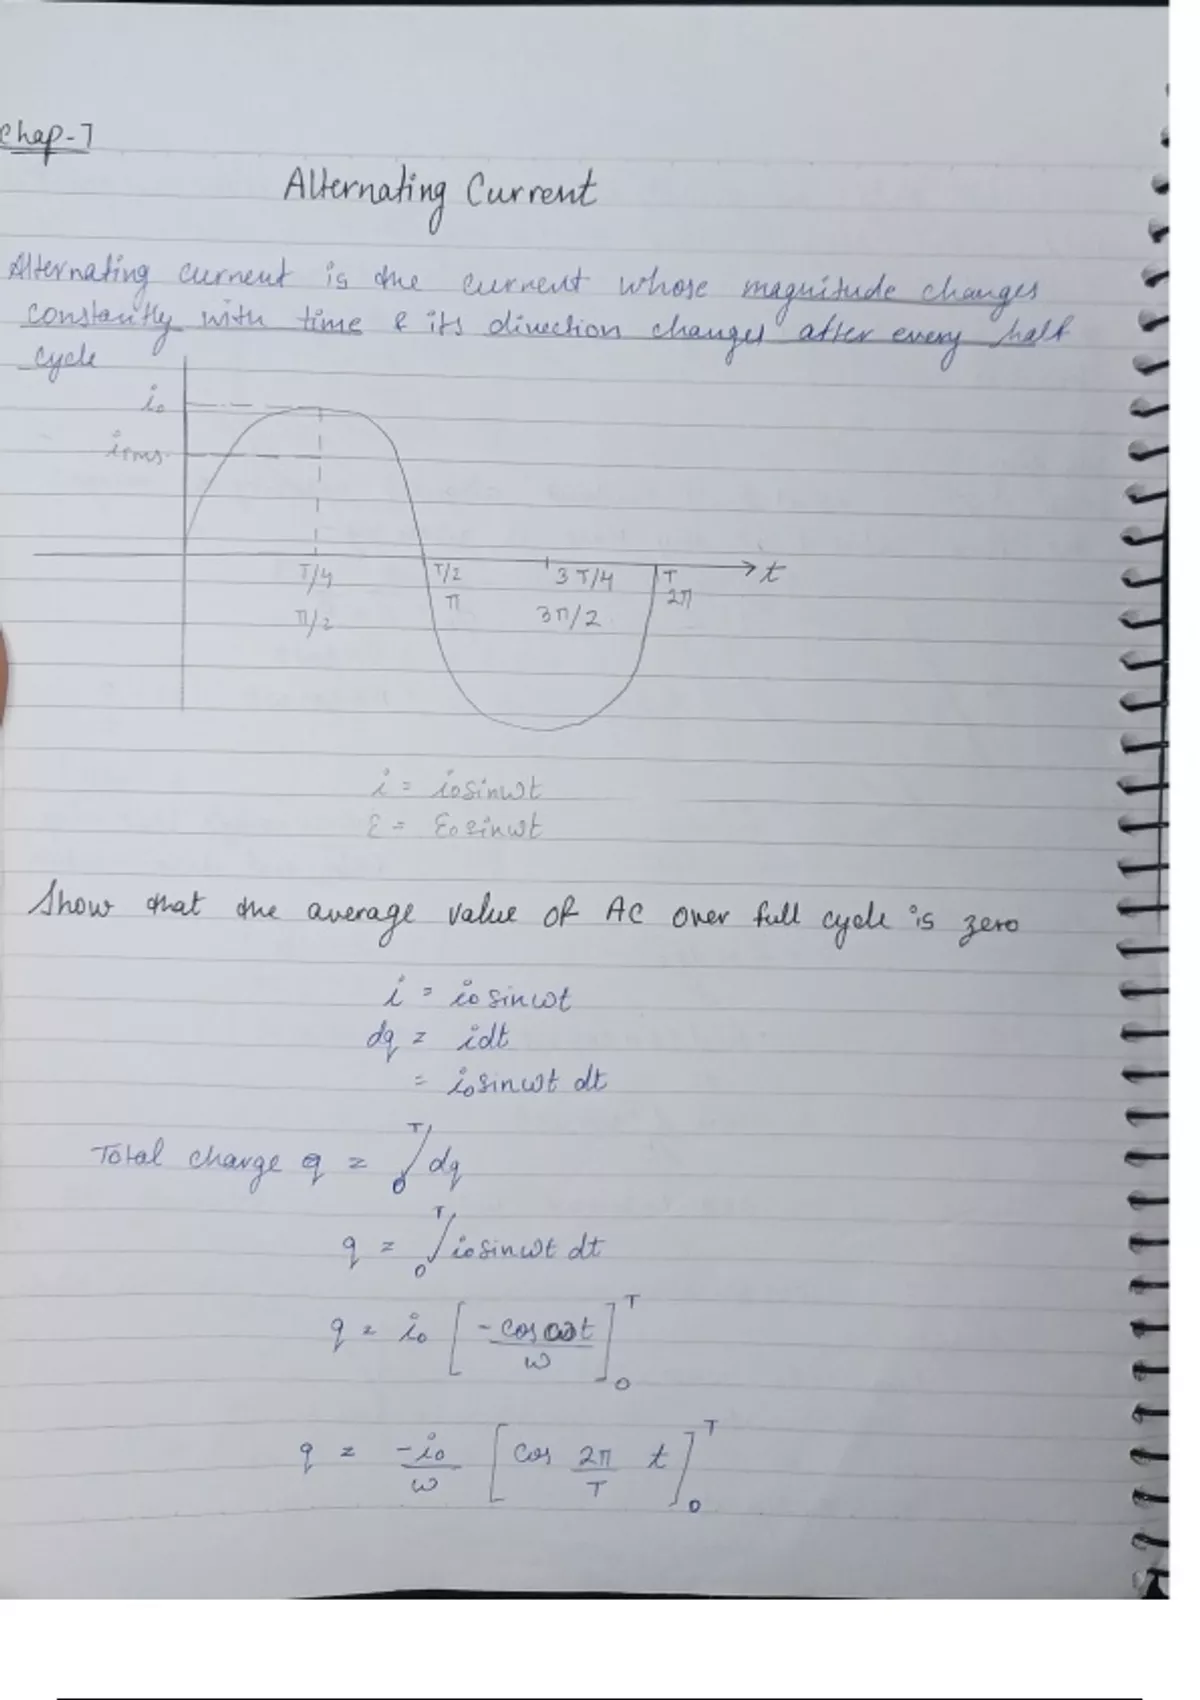 Chap-7
Alternating Current
Alternating current is the current whose magnitude changes
constantly with time & its direction changes after every half
cycle
i₀
irms
T/4 T/2 3T/4 T t
π/2 π 3π/2 2π
i = i₀sinωt
ε = ε₀sinωt
Show that the average value of AC over full cycle is zero
i = i₀ sinωt
dq = idt
= i₀sinωt dt
Total charge q = ∫₀ᵀ dq
q = ∫₀ᵀ i₀sinωt dt
q = i₀ [-cosωt/ω]₀ᵀ
q = -i₀/ω [cos 2π/T t]₀ᵀ